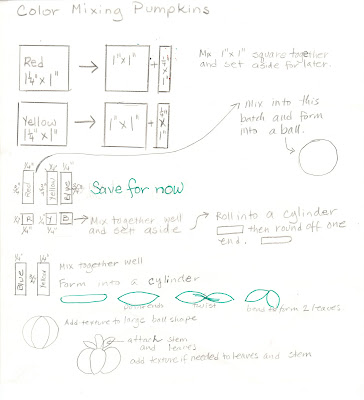 Color Mixing Pumpkins
Red
1¼" x 1"
1" x 1"
¼" x 1"
Mix 1" x 1" square together
and set aside for later.
Yellow
1¼" x 1"
1" x 1"
¼" x 1"
Mix into this
batch and form
into a ball.
¼" ¼" ¼"
Red
Yellow
Blue
Save for now
R Y B
Mix together well
and set aside
Roll into a cylinder
then round off one
end.
¼" ¼"
Blue
Yellow
Mix together well
Form into a cylinder
twist
bend to form 2 leaves
Add texture to large ball shape
attach stem
and leaves
add texture if needed to leaves and stem